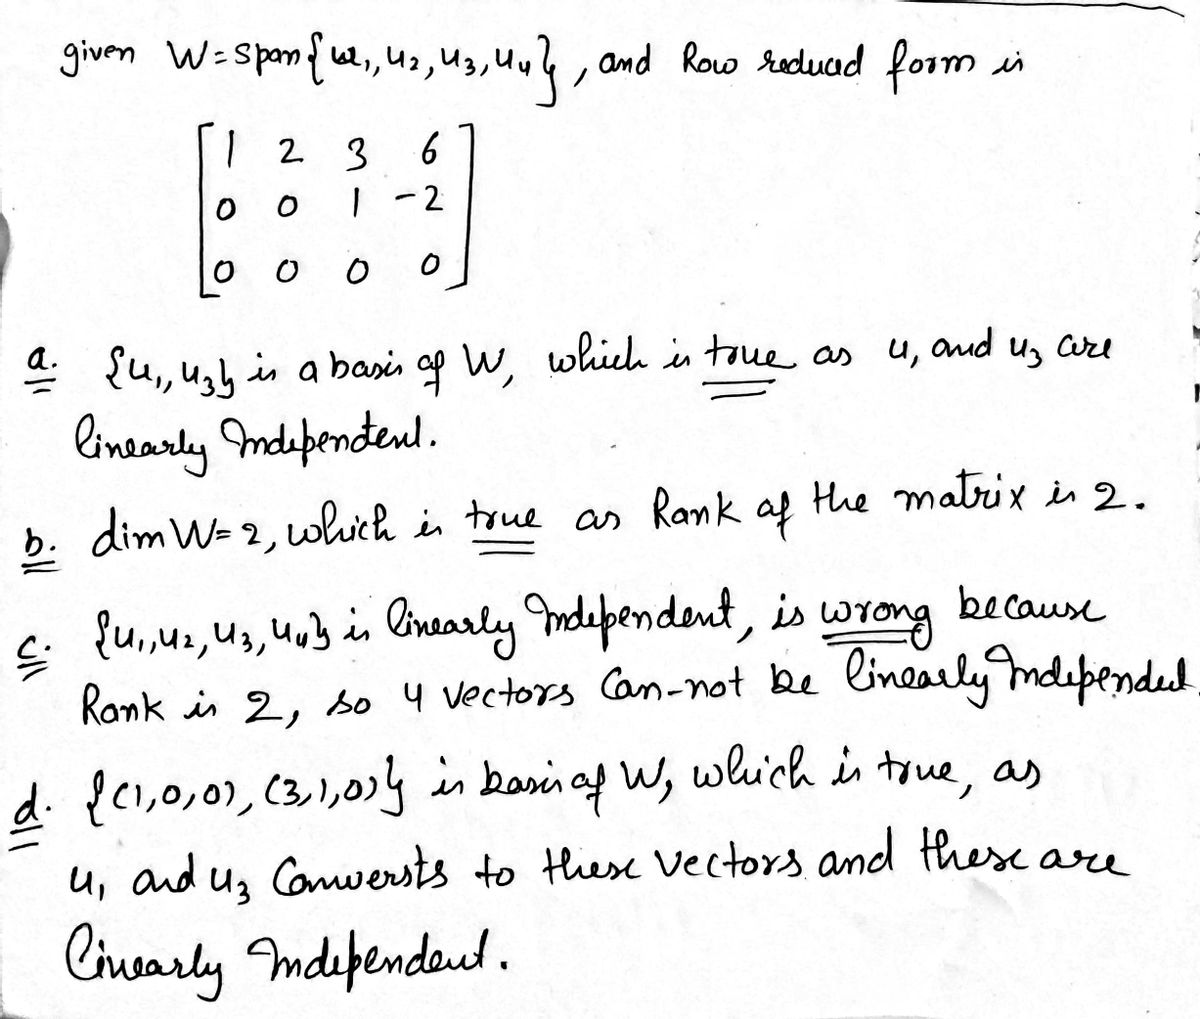 given W = Span{u₁, u₂, u₃, u₄}, and Row reduced form is
[1 2 3 6
0 0 1 -2
0 0 0 0]
a. {u₁, u₃} is a basis of W, which is true as u₁ and u₃ are
linearly Independent.
b. dim W = 2, which is true as Rank of the matrix is 2.
c. {u₁, u₂, u₃, u₄} is linearly Independent, is wrong because
Rank is 2, so 4 vectors can-not be linearly Independent.
d. {(1,0,0), (3,1,0)} is basis of W, which is true, as
u₁ and u₃ Conversts to these vectors and these are
linearly Independent.